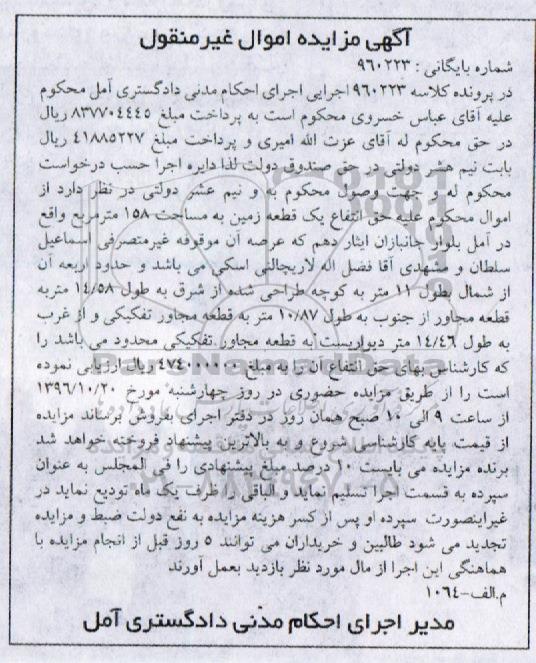 آگهی مزایده اموال غیرمنقول
شماره بایگانی : ۹۶۰۲۲۳
در پرونده کلاسه ۹۶۰۲۲۳ اجرایی اجرای احکام مدنی دادگستری آمل محکوم
علیه آقای عباس خسروی محکوم است به پرداخت مبلغ ۸۳۷۷۰۴۴۴۵ ریال
در حق محکوم له آقای عزت الله امیری و پرداخت مبلغ ۴۱۸۸۵۲۲۷ ریال
بابت نیم عشر دولتی در حق صندوق دولت لذا دایره اجرا حسب درخواست
محکوم له و جهت وصول محکوم به و نیم عشر دولتی در نظر دارد از
اموال محکوم علیه حق انتفاع یک قطعه زمین به مساحت ۱۵۸ مترمربع واقع
در آمل بلوار جانبازان ایثار دهم که عرصه آن موقوفه غیرمتصرفی اسماعیل
سلطان و مشهدی آقا فضل اله لاریجالتی اسکی می باشد و حدود اربعه آن
از شمال بطول ۱۱ متر به کوچه طراحی شده از شرق به طول ۱۴/۵۸ متربه
قطعه مجاور از جنوب به طول ۱۰/۸۷ متر به قطعه مجاور تفکیکی و از غرب
به طول ۱۴/۴۶ متر دیواریست به قطعه مجاور تفکیکی محدود می باشد را
که کارشناس بهای حق انتفاع آن را به مبلغ ۴۷۴۰۰۰۰۰۰۰ ریال ارزیابی نموده
است را از طریق مزایده حضوری در روز چهارشنبه مورخ ۱۳۹۶/۱۰/۲۰
از ساعت ۹ الی ۱۰ صبح همان روز در دفتر اجرای بفروش برساند مزایده
از قیمت پایه کارشناسی شروع و به بالاترین پیشنهاد فروخته خواهد شد
برنده مزایده می بایست ۱۰ درصد مبلغ پیشنهادی را فی المجلس به عنوان
سپرده به قسمت اجرا تسلیم نماید و الباقی را ظرف یک ماه تودیع نماید در
غیراینصورت سپرده او پس از کسر هزینه مزایده به نفع دولت ضبط و مزایده
تجدید می شود طالبین و خریداران می توانند ۵ روز قبل از انجام مزایده با
هماهنگی این اجرا از مال مورد نظر بازدید بعمل آورند
م.الف-۱۰۶۴
مدیر اجرای احکام مدنی دادگستری آمل
ParsNamadData